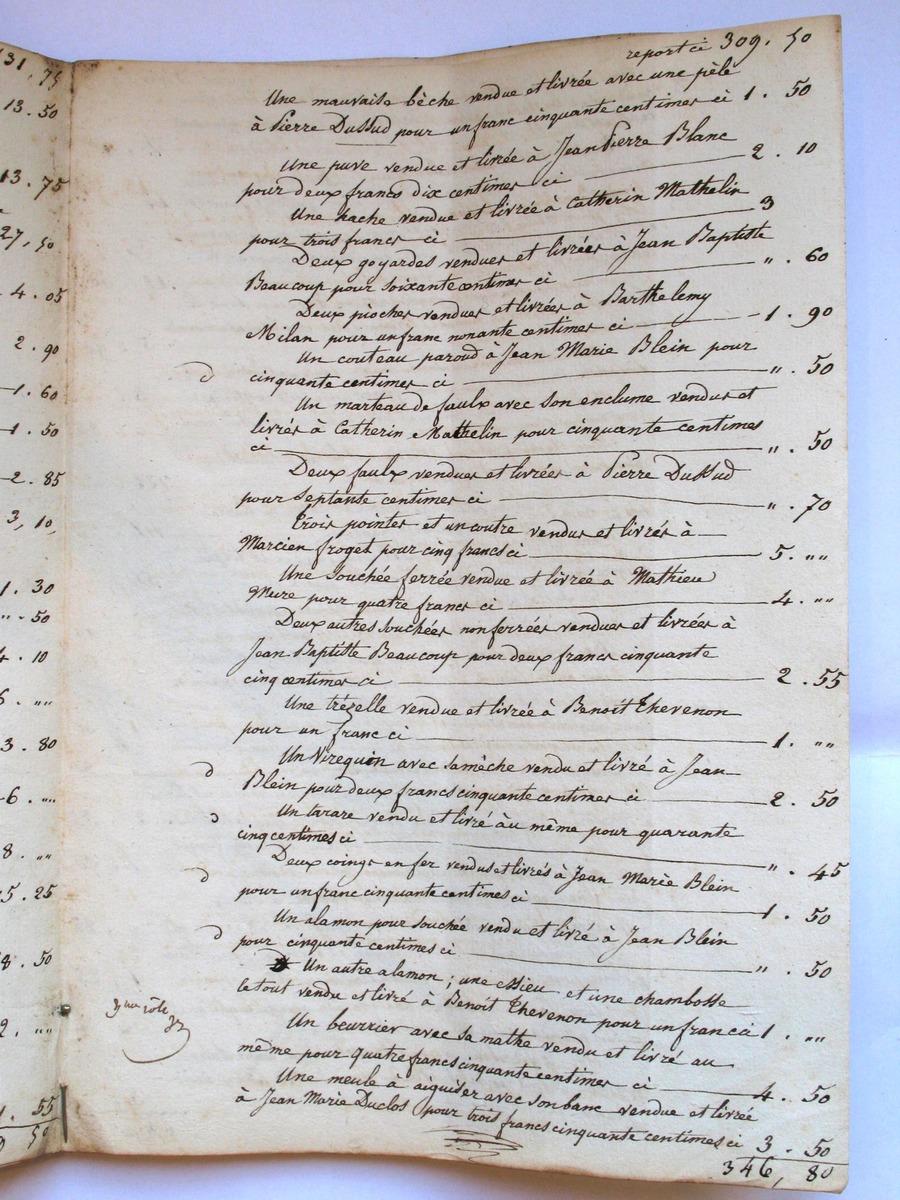 131
, 75
13 . 50
13 . 75
27, 50
4 . 05
2 . 90
1 . 60
1 . 50
2 . 85
3, 10,
1 . 30
" . 50
4 . 10
6 . ""
3 . 80
6 . ""
8 . ""
5 . 25
8 . 50
2 . ""
1 . 55
9 50
report ci 309 . 50
Une mauvaise bêche vendue et livrée avec une pèle
à Pierre Dussud pour un franc cinquante centimes ci 1 . 50
Une puve vendue et livrée à Jean Pierre Blanc
pour deux francs dix centimes ci 2 . 10
Une hache vendue et livrée à Catherin Mathelin
pour trois francs ci 3
Deux goyardes vendues et livrées à Jean Baptiste
Beaucoup pour soixante centimes ci " . 60
Deux pioches vendues et livrées à Barthelemy
Milan pour un franc nonante centimes ci 1 . 90
Un couteau paroud à Jean Marie Blein pour
cinquante centimes ci " . 50
Un marteau de faulx avec son enclume vendus et
livrés à Catherin Mathelin pour cinquante centimes
ci " . 50
Deux faulx vendues et livrées à Pierre Dussud
pour septante centimes ci " . 70
Trois pointes et un coutre vendus et livrés à
Marcien froget pour cinq francs ci 5 . ""
Une Souchée ferrée vendue et livrée à Mathieu
Mure pour quatre francs ci 4 . ""
Deux autres souchées non ferrées vendues et livrées à
Jean Baptiste Beaucoup pour deux francs cinquante
cinq centimes ci 2 . 55
Une trézelle vendue et livrée à Benoit Thevenon
pour un franc ci 1 . ""
Un Virequin avec sa mêche vendu et livré à Jean
Blein pour deux francs cinquante centimes ci 2 . 50
Un tarare vendu et livré au même pour quarante
cinq centimes ci " . 45
Deux coings en fer vendus et livrés à Jean Marie Blein
pour un franc cinquante centimes ci 1 . 50
Un alamon pour souchée vendu et livré à Jean Blein
pour cinquante centimes ci " . 50
Un autre alamon ; une essieu et une chambosse
le tout vendu et livré à Benoit Thevenon pour un franc ci 1 . ""
Un beurrier avec sa mathe vendu et livré au
même pour quatre francs cinquante centimes ci 4 . 50
Une meule à aiguiser avec son banc vendue et livrée
à Jean Marie Duclos pour trois francs cinquante centimes ci 3 . 50
346, 80
rôle